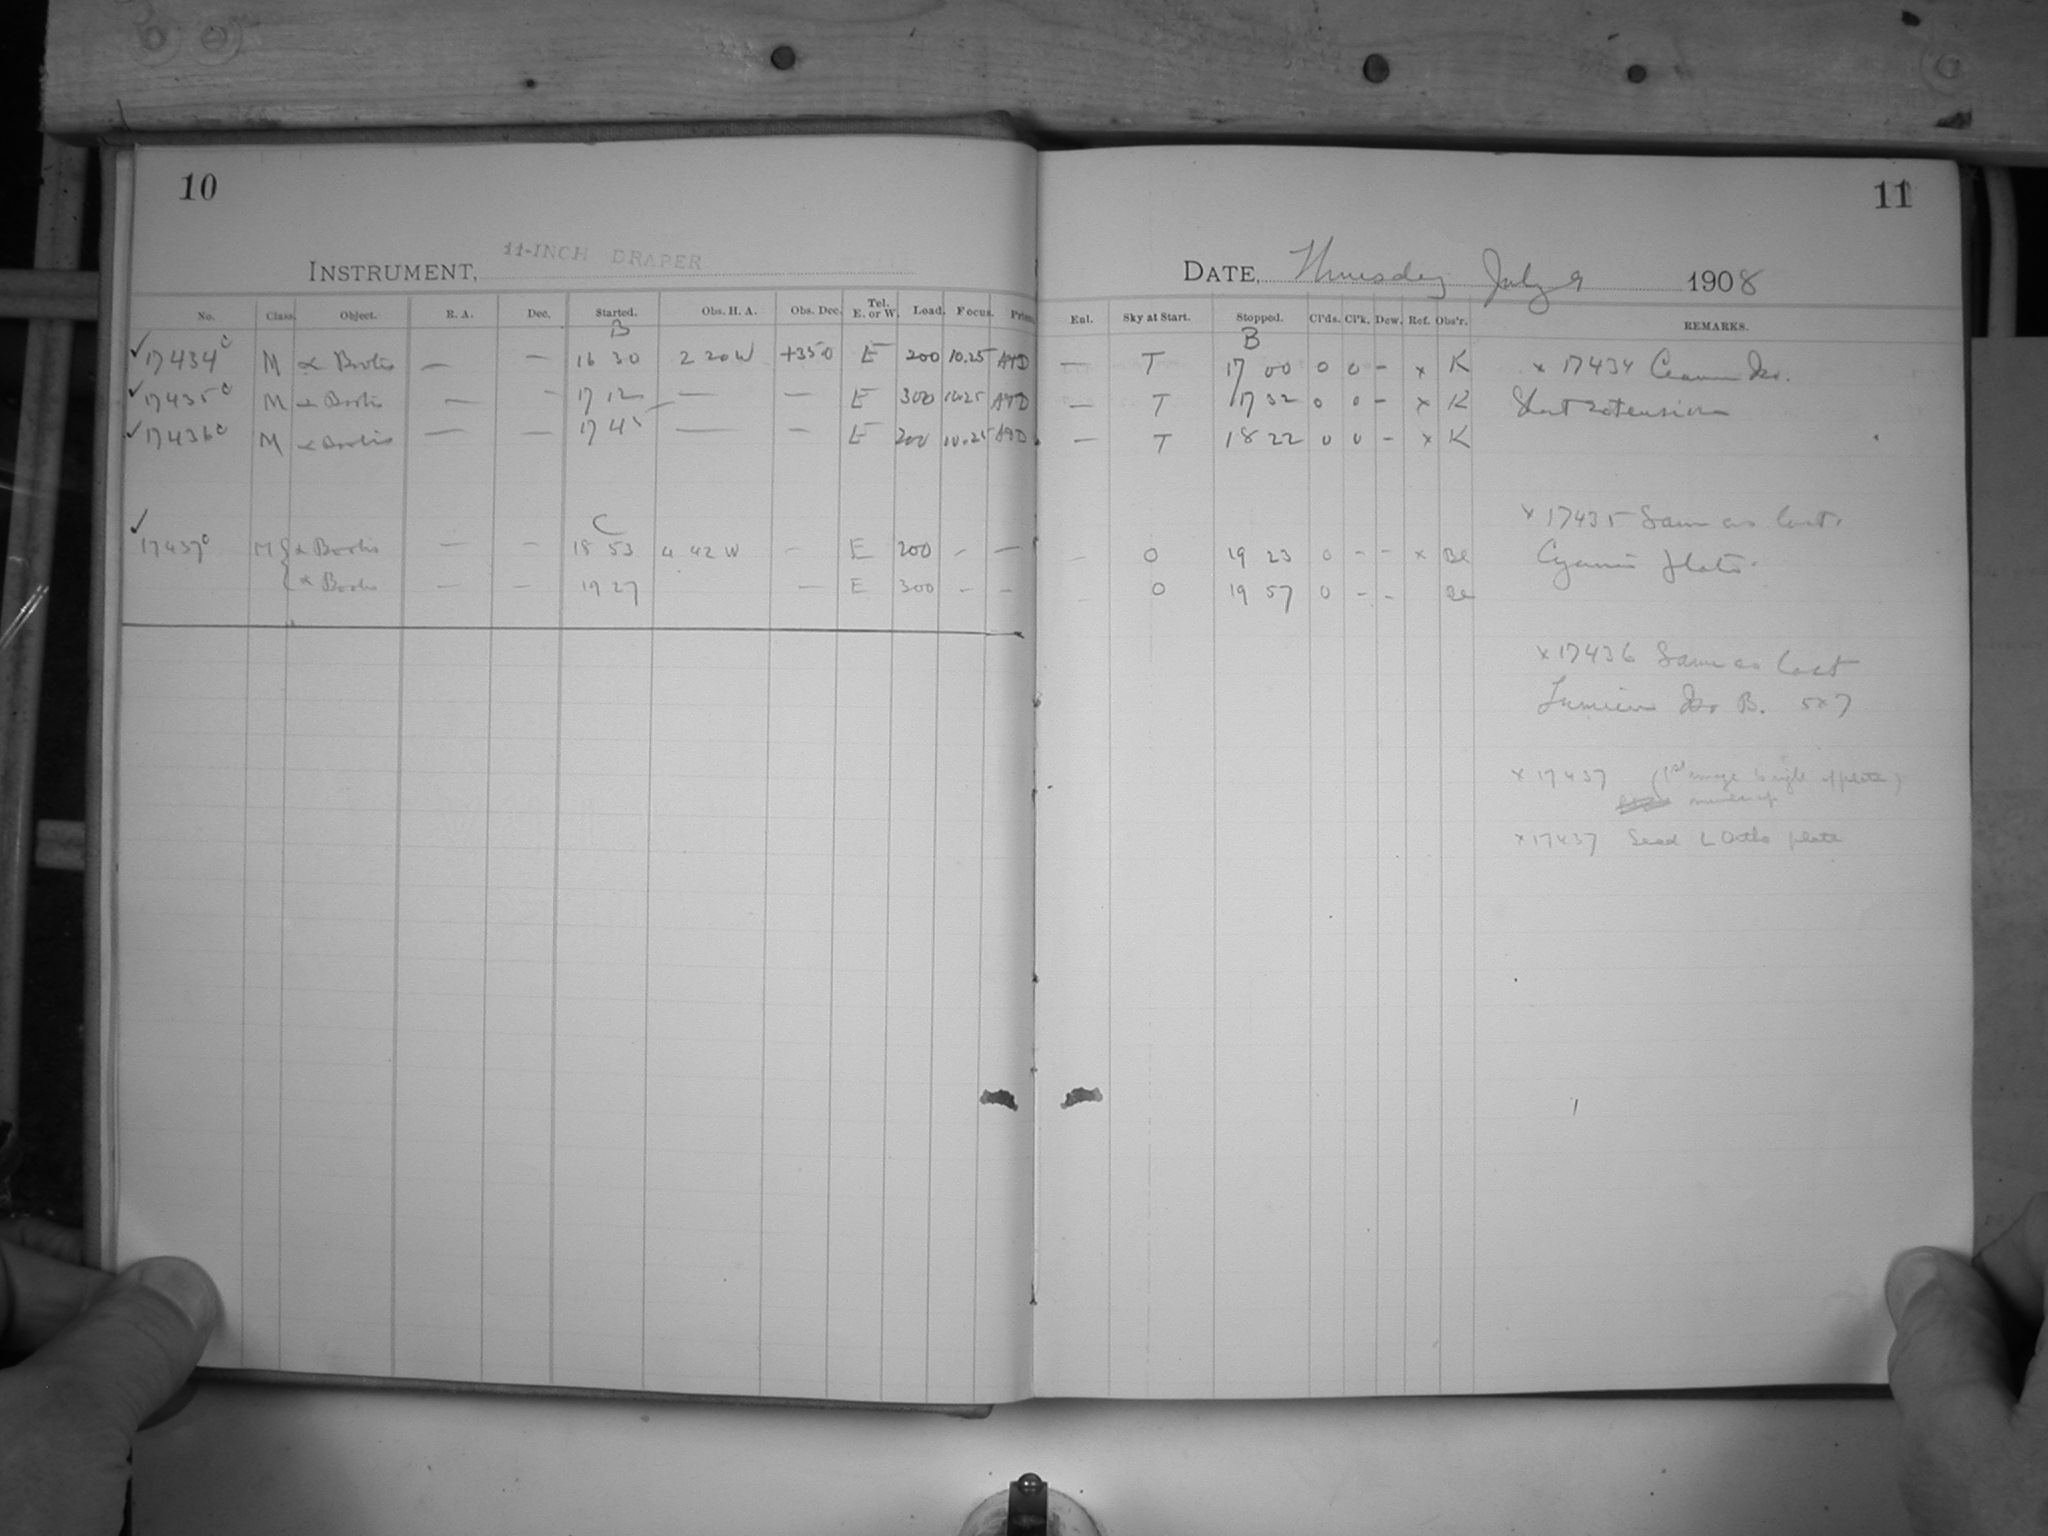 10
11
INSTRUMENT, 11-INCH DRAPER
DATE, Thursday July 9 1908
No. Class. Object. R. A. Dec. Started. Obs. H. A. Obs. Dec. Tel. E. or W. Load. Focus. Prism. Enl. Sky at Start. Stopped. Cl'ds. Cl'k. Dew. Ref. Obs'r. REMARKS.
B B
✓ 17434 c M α Bootis — — 16 30 2 20 W +35 0 E 200 10.25 — T 17 00 0 0 – x K x 17434 Iso.
✓ 17435 c M α Bootis — – 17 12 — — E 300 10.25 — T 17 32 0 0 – x K Short extension
✓ 17436 c M α Bootis — — 17 45 — — E 200 10.25 — T 18 22 0 0 – x K
x 17435 Same as last.
C
✓ 17437 c M { α Bootis — – 18 53 4 42 W – E 200 – — – 0 19 23 0 – – x Be plate.
{ α Bootis — — 19 27 — E 300 – – – 0 19 57 0 – – Be
x 17436 Same as last
Lumiere Iso B. 5x7
x 17437 (1st image to right of plate)
number up
x 17437 Seed L Ortho plate